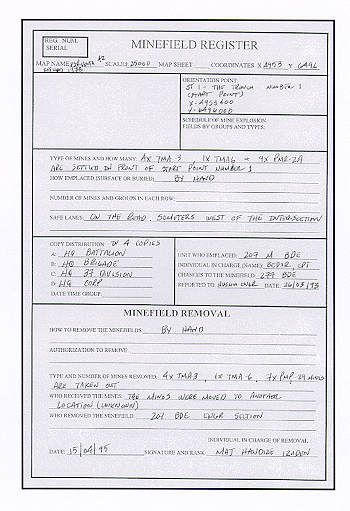 REG. NUM.
SERIAL
MINEFIELD REGISTER
MAP NAME SCALE 1:25000 MAP SHEET COORDINATES X 4953 Y 6496
ORIENTATION POINT
ST 1 - THE TRENCH NUMBER 1
(START POINT)
X-4953400
Y-6496000
SCHEDULE OF MINE EXPLOSION
FIELDS BY GROUPS AND TYPES:
TYPE OF MINES AND HOW MANY: 4x TMA-3, 1x TMA6 + 9x PMR-2A
ARE SETTLED IN FRONT OF START POINT NUMBER 1
HOW EMPLACED (SURFACE OR BURIED) BY HAND
NUMBER OF MINES AND GROUPS IN EACH ROW:
SAFE LANES: ON THE ROAD, 50METERS WEST OF THE INTERSECTION
COPY DISTRIBUTION IN 4 COPIES
A: HQ BATTALION
B: HQ BRIGADE
C: HQ 37 DIVISION
D: HQ CORP
DATE TIME GROUP
UNIT WHO EMPLACED: 207 M BDE
INDIVIDUAL IN CHARGE (NAME): CPT
CHANGES TO THE MINEFIELD: 279 BDE
REPORTED TO: ENGR DATE: 26/03/95
MINEFIELD REMOVAL
HOW TO REMOVE THE MINEFIELDS: BY HAND
AUTHORIZATION TO REMOVE
TYPE AND NUMBER OF MINES REMOVED: 4x TMA3, 1x TMA-6, 7x PMR, 2A MINES
ARE TAKEN OUT
WHO RECEIVED THE MINES: THE MINES WERE MOVED TO ANOTHER
LOCATION (UNKNOWN)
WHO REMOVED THE MINEFIELD: 207 BDE ENGR SECTION
INDIVIDUAL IN CHARGE OF REMOVAL
DATE: 15/04/95 SIGNATURE AND RANK MAJ